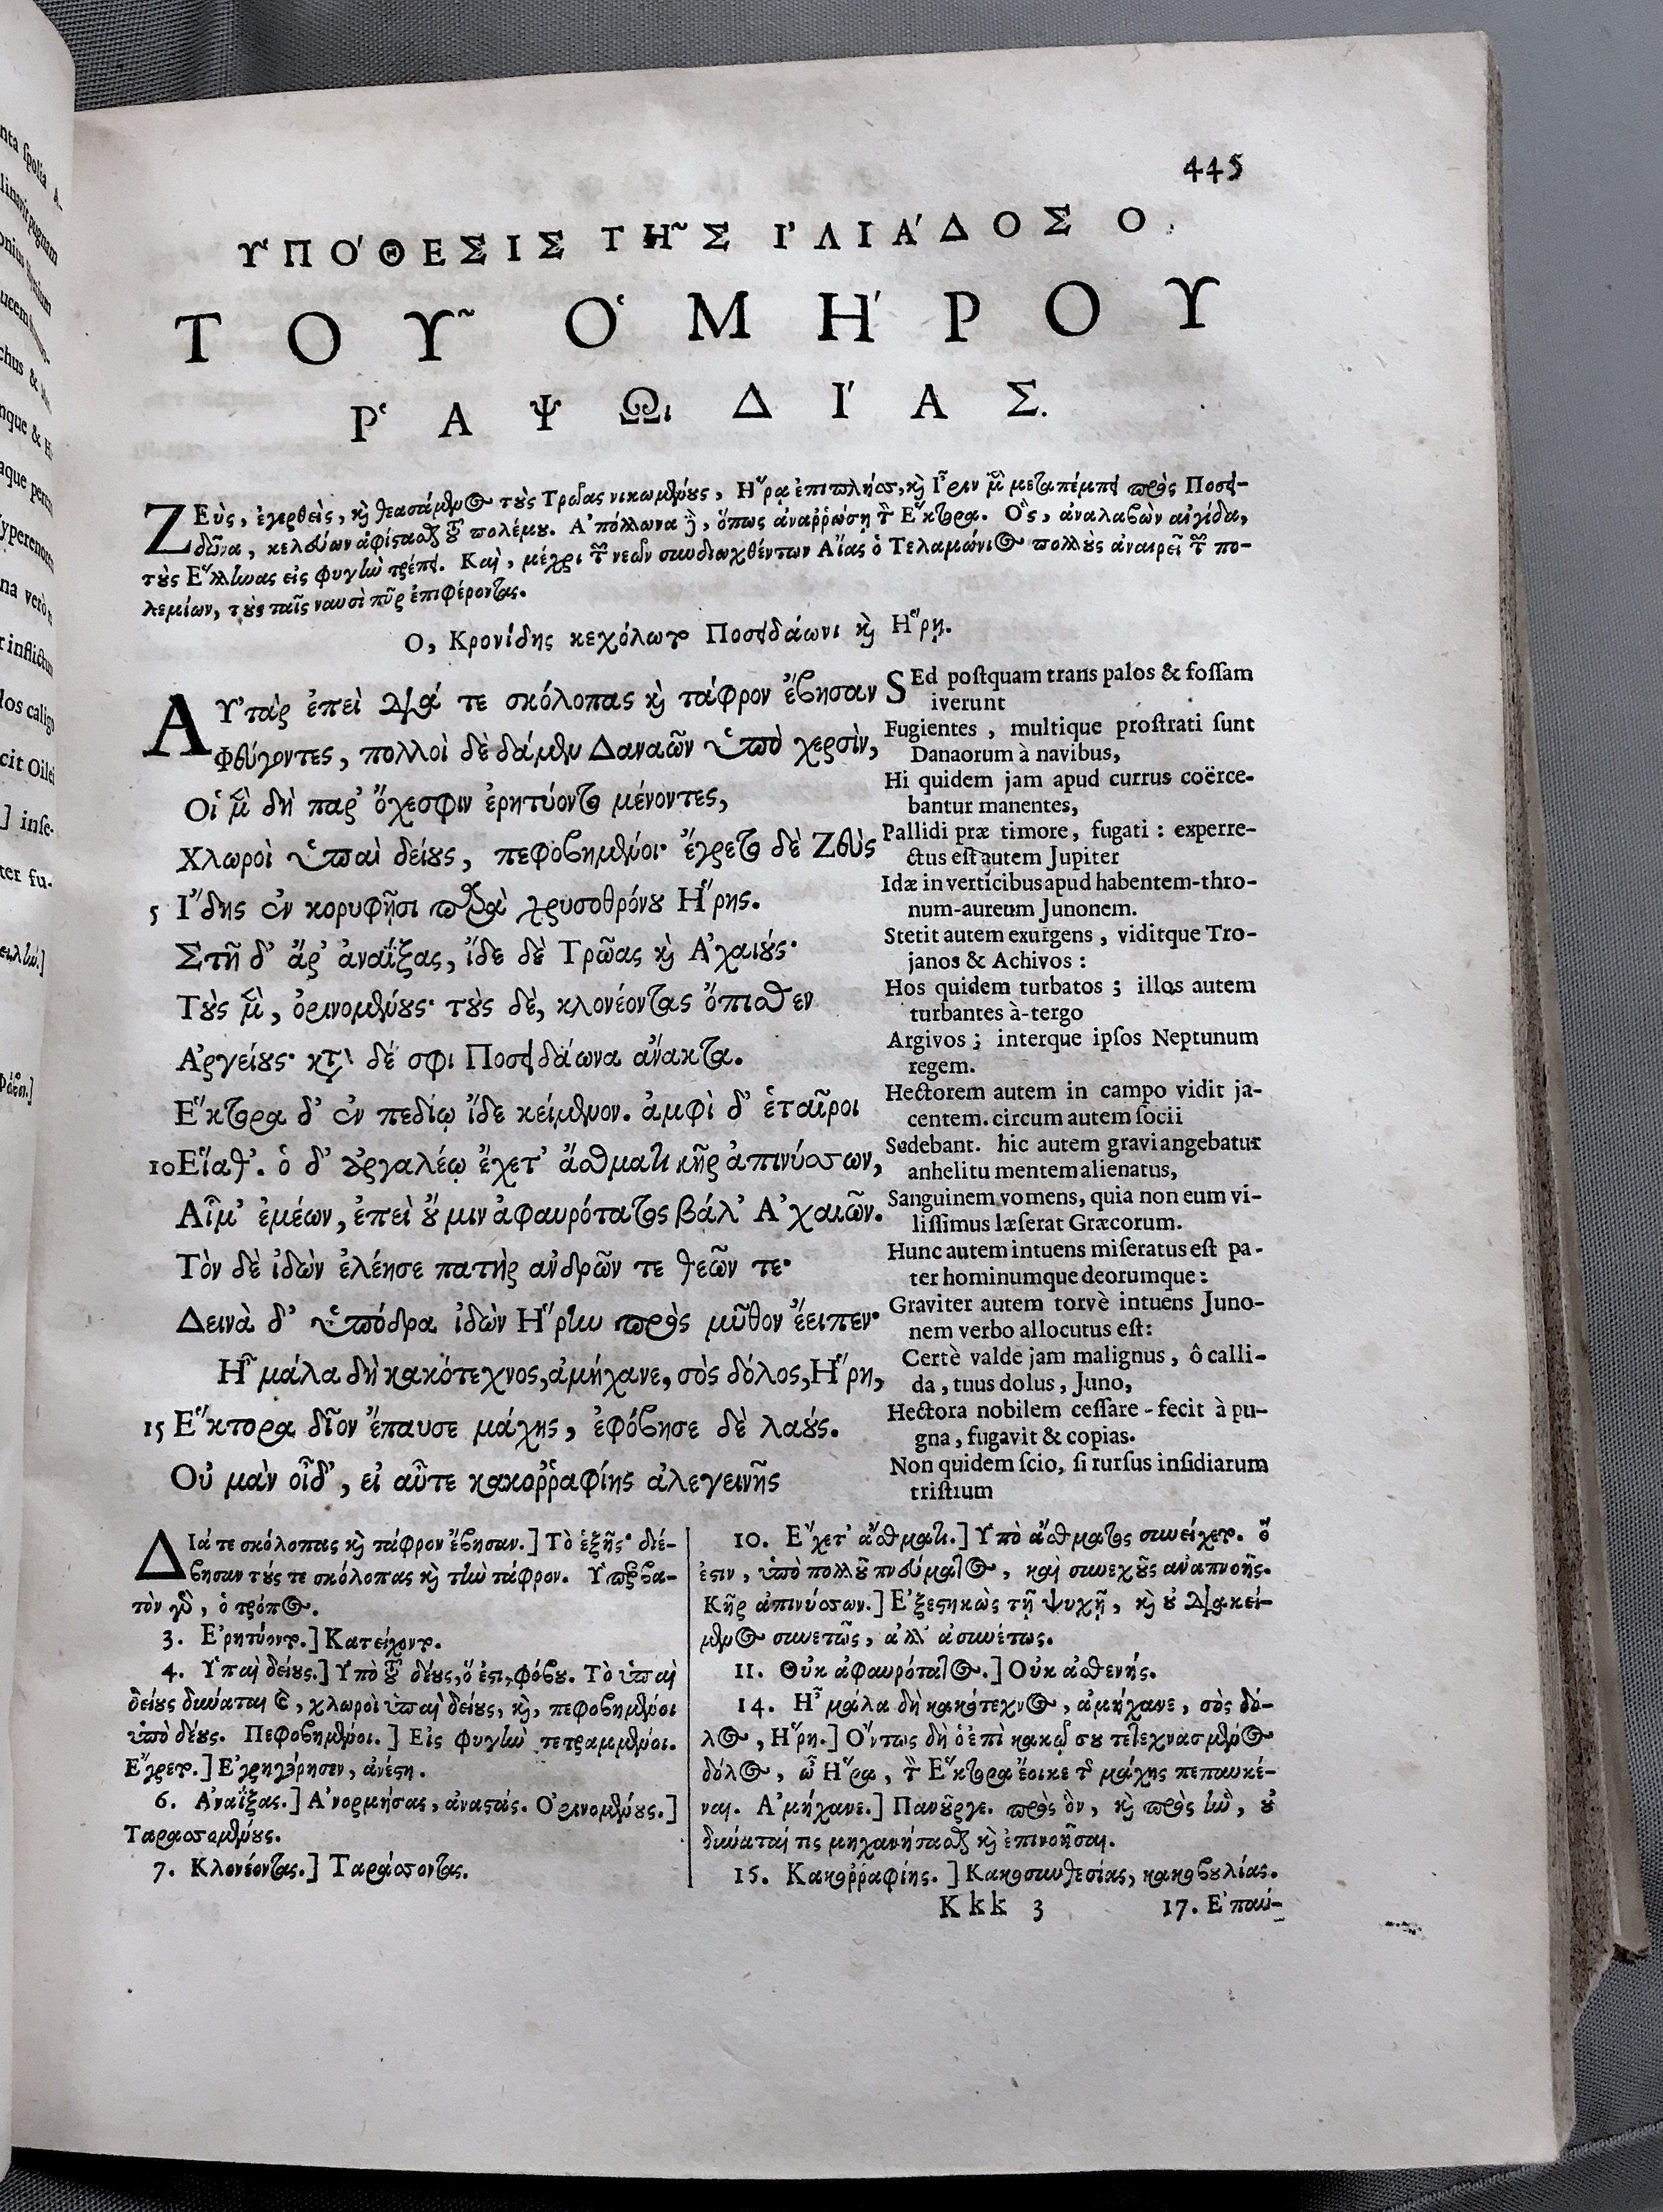 445
ΥΠΟ'ΘΕΣΙΣ ΤΗ῀Σ Ι'ΛΙΑ'ΔΟΣ Ο.
ΤΟΥ῀ Ο῾ΜΗ'ΡΟΥ
Ρ῾ΑΨΩιΔΙ'ΑΣ.
ΖΕὺς, ἐγερθεὶς, καὶ θεασάμενος τοὺς Τρῶας νικωμένους, Ἥρᾳ ἐπιπλήσσει, καὶ Ἶριν μὲν μεταπέμπει πρὸς Ποσει-
δῶνα, κελεύων ἀφίστασθαι τοῦ πολέμου. Ἀπόλλωνα δὲ, ὅπως ἀναῤῥώσῃ τὸν Ἕκτορα. Ὃς, ἀναλαβὼν αἰγίδα,
τοὺς Ἕλληνας εἰς φυγὴν τρέπει. Καὶ, μέχρι τῶν νεῶν συνδιωχθέντων Αἴας ὁ Τελαμώνιος πολλοὺς ἀναιρεῖ τῶν πο-
λεμίων, τοὺς ταῖς ναυσὶ πῦρ ἐπιφέροντας.
Ο, Κρονίδης κεχόλωτο Ποσειδάωνι καὶ Ἥρῃ.
ΑΥ᾿τὰρ ἐπεὶ διά τε σκόλοπας καὶ τάφρον ἔβησαν
Φεύγοντες, πολλοὶ δὲ δάμεν Δαναῶν ὑπὸ χερσὶν,
Οἱ μὲν δὴ παρ' ὄχεσφιν ἐρητύοντο μένοντες,
Χλωροὶ ὑπαὶ δείους, πεφοβημένοι· ἔγρετο δὲ Ζεὺς
5 Ἴδης ἐν κορυφῇσι παρὰ χρυσοθρόνου Ἥρης.
Στῆ δ' ἄρ' ἀναΐξας, ἴδε δὲ Τρῶας καὶ Ἀχαιούς·
Τοὺς μὲν, ὀρινομένους· τοὺς δὲ, κλονέοντας ὄπισθεν
Ἀργείους· μετὰ δέ σφι Ποσειδάωνα ἄνακτα.
Ἕκτορα δ' ἐν πεδίῳ ἴδε κείμενον. ἀμφὶ δ' ἑταῖροι
10 Εἵαθ'. ὁ δ' ἀργαλέῳ ἔχετ' ἄσθματι κῆρ ἀπινύσσων,
Αἷμ' ἐμέων, ἐπεὶ οὔ μιν ἀφαυρότατος βάλ' Ἀχαιῶν.
Τὸν δὲ ἰδὼν ἐλέησε πατὴρ ἀνδρῶν τε θεῶν τε·
Δεινὰ δ' ὑπόδρα ἰδὼν Ἥρην πρὸς μῦθον ἔειπεν·
Ἦ μάλα δὴ κακότεχνος, ἀμήχανε, σὸς δόλος, Ἥρη,
15 Ἕκτορα δῖον ἔπαυσε μάχης, ἐφόβησε δὲ λαούς.
Οὐ μὰν οἶδ', εἰ αὖτε κακοῤῥαφίης ἀλεγεινῆς
SEd postquam trans palos & fossam
iverunt
Fugientes, multique prostrati sunt
Danaorum à navibus,
Hi quidem jam apud currus coërce-
bantur manentes,
Pallidi præ timore, fugati: experre-
ctus est autem Jupiter
Idæ in verticibus apud habentem-thro-
num-aureum Junonem.
Stetit autem exurgens, viditque Tro-
janos & Achivos:
Hos quidem turbatos; illos autem
turbantes à-tergo
Argivos; interque ipsos Neptunum
regem.
Hectorem autem in campo vidit ja-
centem. circum autem socii
Sedebant. hic autem gravi angebatur
anhelitu mentem alienatus,
Sanguinem vomens, quia non eum vi-
lissimus læserat Græcorum.
Hunc autem intuens miseratus est pa-
ter hominumque deorumque:
Graviter autem torvè intuens Juno-
nem verbo allocutus est:
Certè valde jam malignus, ô calli-
da, tuus dolus, Juno,
Hectora nobilem cessare-fecit à pu-
gna, fugavit & copias.
Non quidem scio, si rursus insidiarum
tristium
ΔΙά τε σκόλοπας καὶ τάφρον ἔβησαν.] Τὸ ἑξῆς· διέ-
βησαν τούς τε σκόλοπας καὶ τὴν τάφρον. Ὑπερβα-
τὸν γὰρ, ὁ τρόπος.
3. Ἐρητύοντο.] Κατείχοντο.
4. Ὑπαὶ δείους.] Ὑπὸ τοῦ δέους, ὅ ἐστι, φόβου. Τὸ ὑπαὶ
δείους δύναται εἶναι, χλωροὶ ὑπαὶ δείους, καὶ, πεφοβημένοι
ὑπὸ δέους. Πεφοβημένοι.] Εἰς φυγὴν τετραμμένοι.
Ἔγρετο.] Ἐγρηγόρησεν, ἀνέστη.
6. Ἀναΐξας.] Ἀνορμήσας, ἀναστάς. Ὀρινομένους.]
Ταρασσομένους.
7. Κλονέοντας.] Ταράσσοντας.
10. Ἔχετ' ἄσθματι.] Ὑπὸ ἄσθματος συνείχετο. ὅ
ἐστιν, ὑπὸ πολλοῦ πνεύματος, καὶ συνεχοῦς ἀναπνοῆς.
Κῆρ ἀπινύσσων.] Ἐξεστηκὼς τῇ ψυχῇ, καὶ οὐ διακεί-
μενος συνετῶς, ἀλλ' ἀσυνέτως.
11. Οὐκ ἀφαυρότατος.] Οὐκ ἀσθενής.
14. Ἦ μάλα δὴ κακότεχνος, ἀμήχανε, σὸς δό-
λος, Ἥρη.] Ὄντως δὴ ὁ ἐπὶ κακῷ σου τετεχνασμένος
δόλος, ὦ Ἥρα, τὸν Ἕκτορα ἔοικε τῆς μάχης πεπαυκέ-
ναι. Ἀμήχανε.] Πανοῦργε. πρὸς ὃν, καὶ πρὸς ἣν, οὐ
δύναταί τις μηχανήσασθαι καὶ ἐπινοῆσαι.
15. Κακοῤῥαφίης.] Κακοσυνθεσίας, κακοβουλίας.
Kkk 3 17. Ἐπαύ-